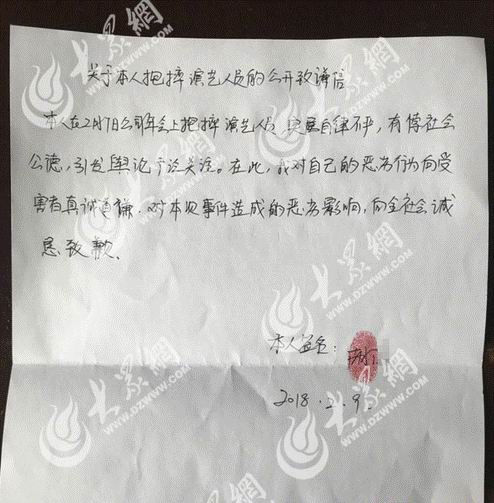 关于本人抱摔演艺人员的公开致谦信
本人在2月7日公司年会上抱摔演艺人员,实属自律不严,有悖社会
公德,引发舆论广泛关注。在此,我对自己的恶劣行为向受
害者真诚道谦,对本次事件造成的恶劣影响,向全社会诚
恳致歉。
本人签名:
2018.2.9.
大眾網
WWW.DZWWW.COM